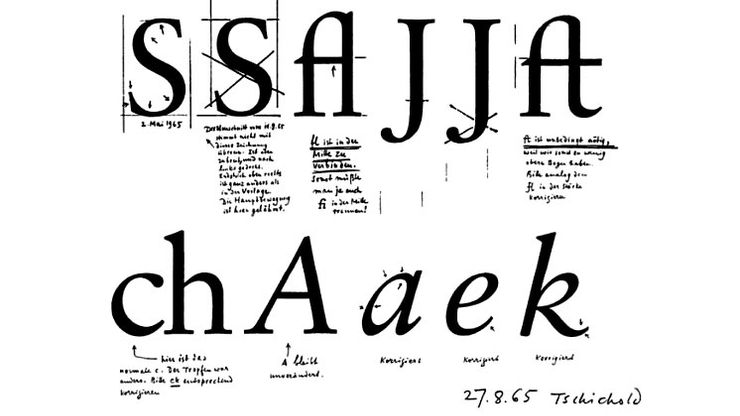 S S fl J J ft
2. Mai 1965
stimmt nicht mit
dieser Zeichnung
überein. Ist oben
nach
links gedreht.
oben rechts
ist ganz anders als
in der Vorlage.
Die Hauptbewegung
ist hier gelähmt.
fl ist in der
Mitte zu
verbinden.
Sonst müßte
man ja auch
fi in der Mitte
trennen!
ft ist unbedingt nötig,
weil wir sonst zu wenig
obere Bogen haben.
Bitte analog den
fl in der Stärke
korrigieren
ch A a e k
hier ist das
normale c. Der Tropfen war
anders. Bitte ck entsprechend
korrigieren
A bleibt
unverändert.
Korrigiert
Korrigiert
Korrigiert
27.8.65 Tschichold